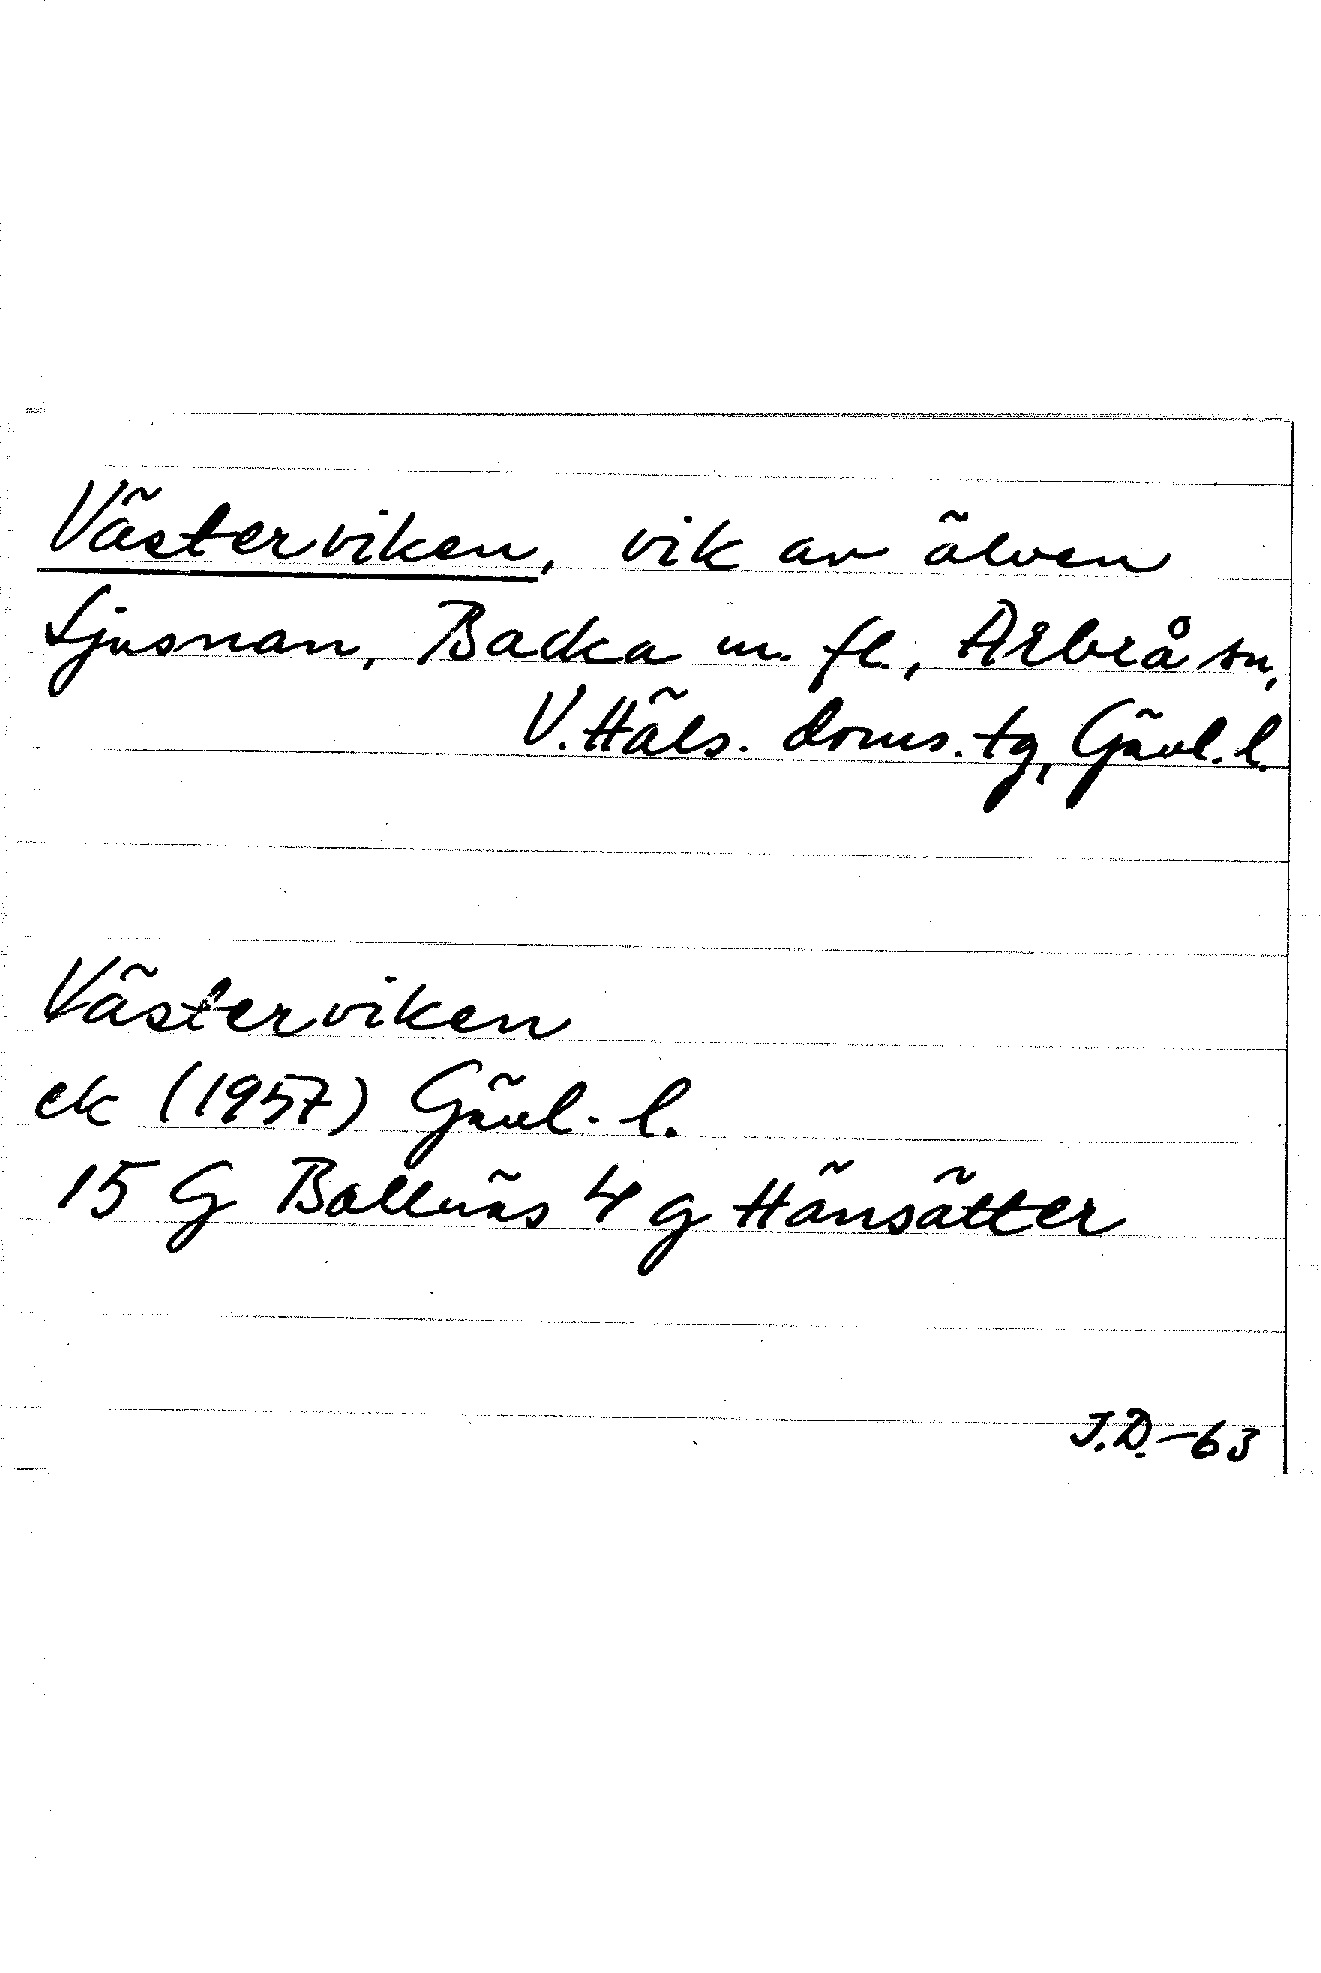 Västerviken, vik av älven
Ljusnan, Backa m. fl., Arbrå sn,
V. Häls. doms. tg, Gävl. l.
Västerviken
ek (1957) Gävl. l.
15 G Bollnäs 4 g Hänsätter
J.D. -63